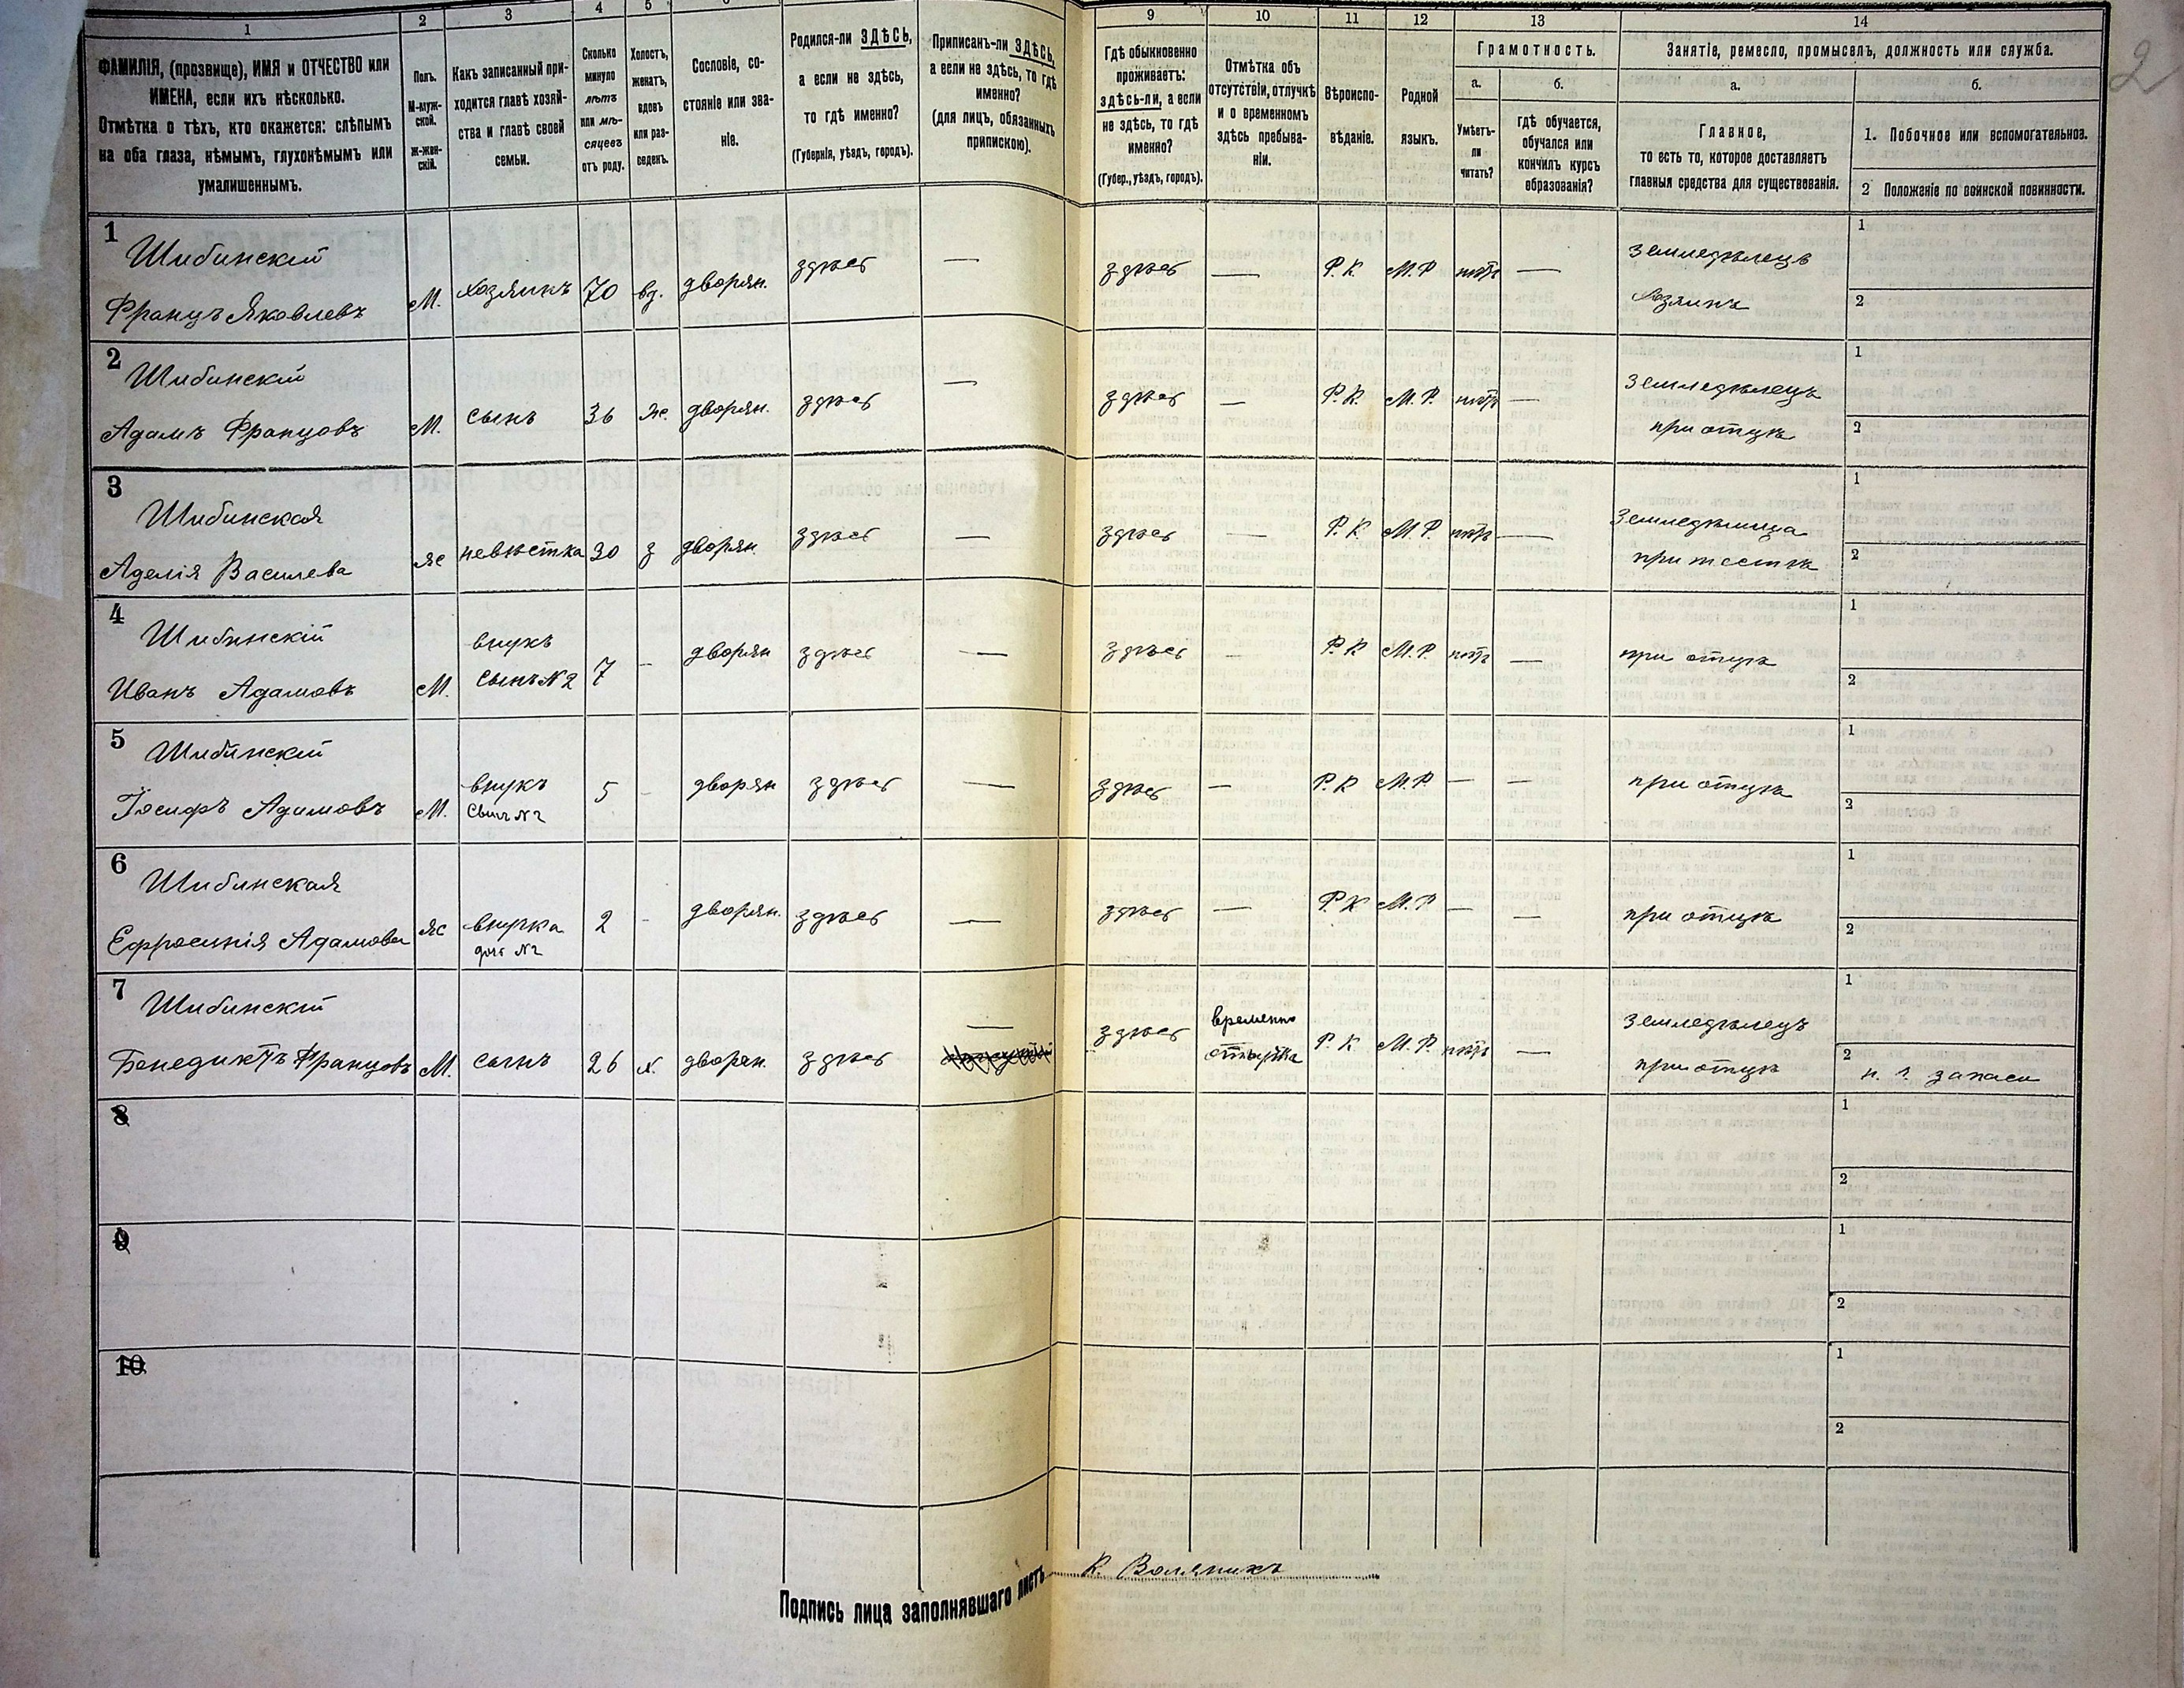 1 2 3 4 5 6 9 10 11 12 13 14
ФАМИЛІЯ, (прозвище), ИМЯ и ОТЧЕСТВО или
ИМЕНА, если ихъ нѣсколько.
Отмѣтка о тѣхъ, кто окажется: слѣпымъ
на оба глаза, нѣмымъ, глухонѣмымъ или
умалишеннымъ.
Полъ.
М-муж-
ской.
ж-жен-
скій.
Какъ записанный при-
ходится главѣ хозяй-
ства и главѣ своей
семьи.
Сколько
минуло
лѣтъ
или мѣ-
сяцевъ
отъ роду.
Холостъ,
женатъ,
вдовъ
или раз-
веденъ.
Сословіе, со-
стояніе или зва-
ніе.
Родился-ли ЗДѢСЬ,
а если не здѣсь,
то гдѣ именно?
(Губернія, уѣздъ, городъ).
Приписанъ-ли ЗДѢСЬ,
а если не здѣсь, то гдѣ
именно?
(для лицъ, обязанныхъ
припискою).
Гдѣ обыкновенно
проживаетъ:
здѣсь-ли, а если
не здѣсь, то гдѣ
именно?
(Губер., уѣздъ, городъ).
Отмѣтка объ
отсутствіи, отлучкѣ
и о временномъ
здѣсь пребыва-
ніи.
Вѣроиспо-
вѣданіе.
Родной
языкъ.
Грамотность.
а.
Умѣетъ-
ли
читать?
б.
гдѣ обучается,
обучался или
кончилъ курсъ
образованія?
Занятіе, ремесло, промыселъ, должность или служба.
а.
Главное,
то есть то, которое доставляетъ
главныя средства для существованія.
б.
1. Побочное или вспомогательное.
2 Положеніе по воинской повинности.
2
1
Шибинскій
Францъ Яковлевъ
М. хозяинъ 70 вд. дворян. здѣсь — здѣсь — Р. К М. Р нѣтъ —
земледѣлецъ
хозяинъ
1
2
2
Шибинскій
Адамъ Францовъ
М. сынъ 36 ж. дворян. здѣсь — здѣсь — Р. К. М. Р. нѣтъ —
земледѣлецъ
при отцѣ
1
2
3
Шибинская
Аделія Василева
ж невѣстка 30 з дворян. здѣсь — здѣсь — Р. К М. Р. нѣтъ —
при тестѣ
1
2
4
Шибинскій
Иванъ Адамовъ
М.
внукъ
сынъ N 2
7 - дворян здѣсь — здѣсь — Р. К М. Р. нѣтъ —
при отцѣ
1
2
5
Шибинскій
Іосифъ Адамовъ
М.
внукъ
сынъ N 2
5 - дворян здѣсь — здѣсь — Р. К М. Р. — —
при отцѣ
1
2
6
Шибинская
Ефросинія Адамова
ж
внучка
дочь N 2
2 - дворян. здѣсь — здѣсь — Р. К М. Р — —
при отцѣ
1
2
7
Шибинскій
Бенедиктъ Францовъ
М. сынъ 26 х. дворян. здѣсь — здѣсь
временно
отлучка
Р. К М. Р. нѣтъ —
земледѣлецъ
при отцѣ
1
2
запаса
8
1
2
9
1
2
10
1
2
Подпись лица заполнявшаго листъ К.